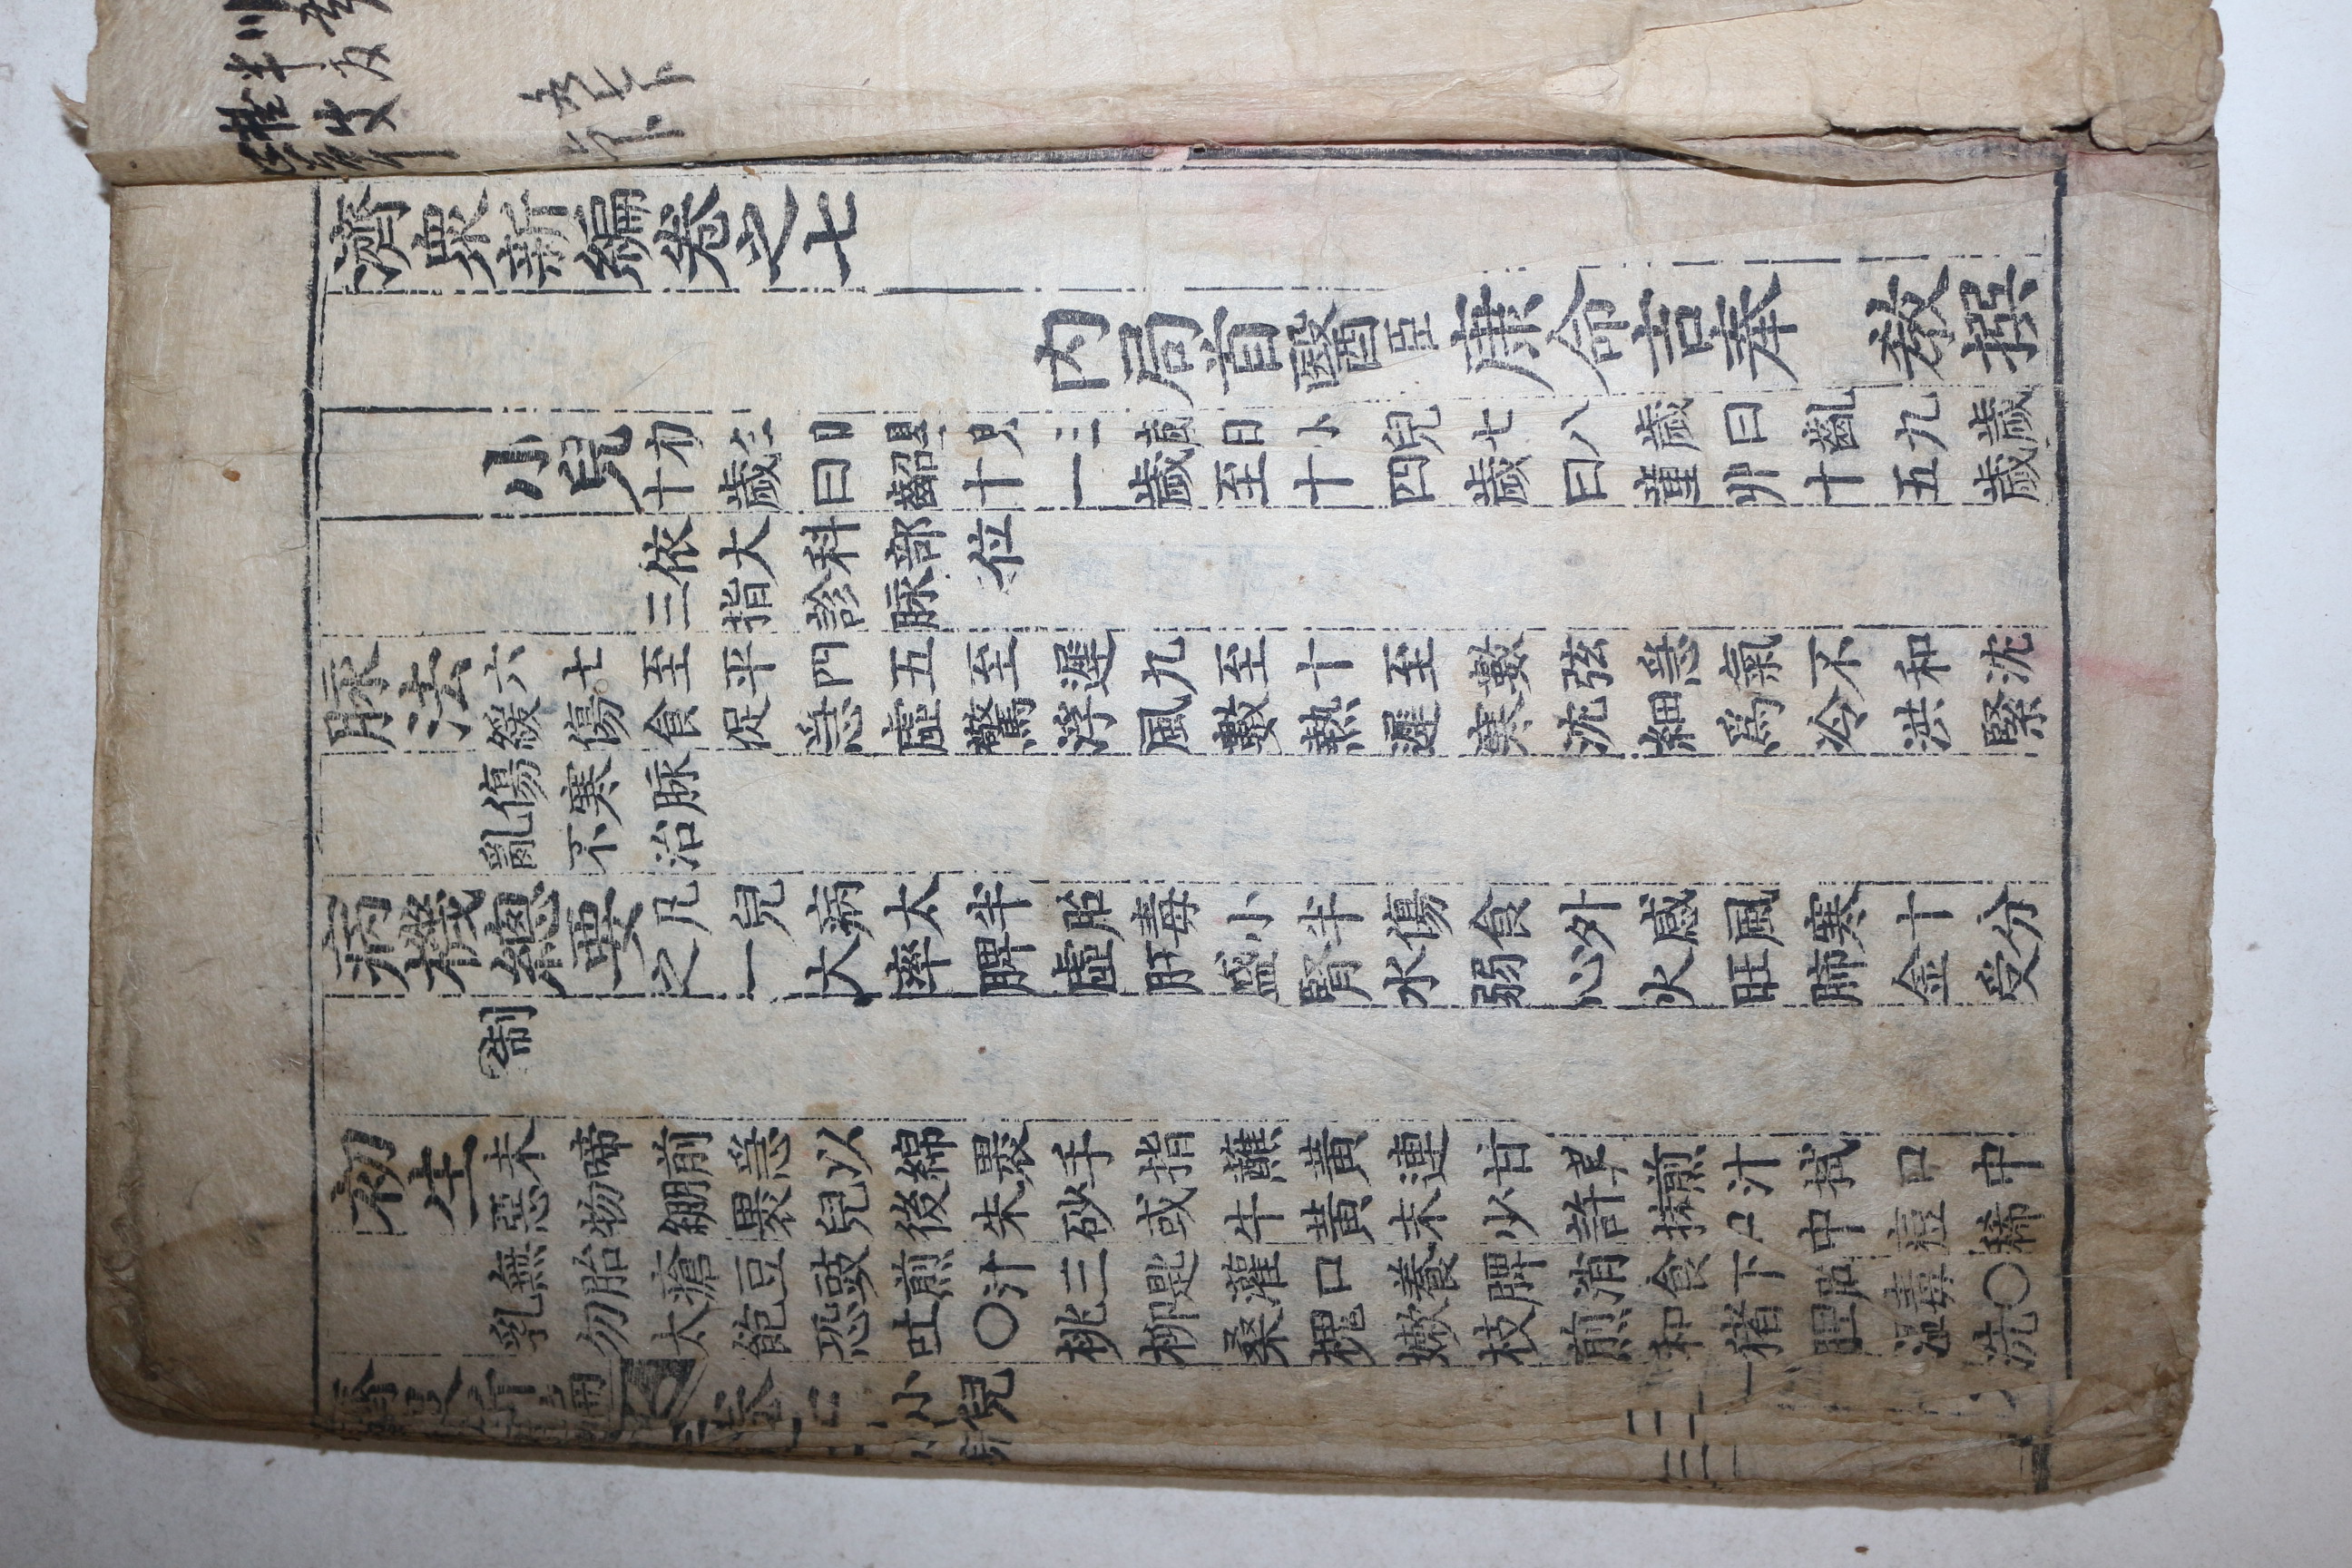 濟衆新編卷之七
內局首醫臣康命吉奉 教撰
小兒
三歲曰小兒七八歲曰齔九歲
十歲曰齠十一歲至十四歲曰童丱十五歲
依大科部位
三指診脉
脉法
六七至平四五至遲九至十至數弦急氣不和沈
緩傷食促急虛驚浮風數熱遲寒沈細爲冷洪緊
傷寒脉
亂不治
病機總要
凡兒病太半胎毒小半傷食外感風寒十分
之一大率脾虛肝盛腎水弱心火旺肺金受
制
初生
未啼前急以綿裹手指蘸黃連甘草煎汁拭口中
惡物繃裹兒後朱砂或牛黃末少許抹口中痘稀
無胎瘡豆豉煎汁三匙灌口養脾消食下胎毒〇
乳勿太飽恐吐〇桃柳桑槐嫩枝煎和猪胆溫洗
濟衆新編 卷七 小兒
半夏